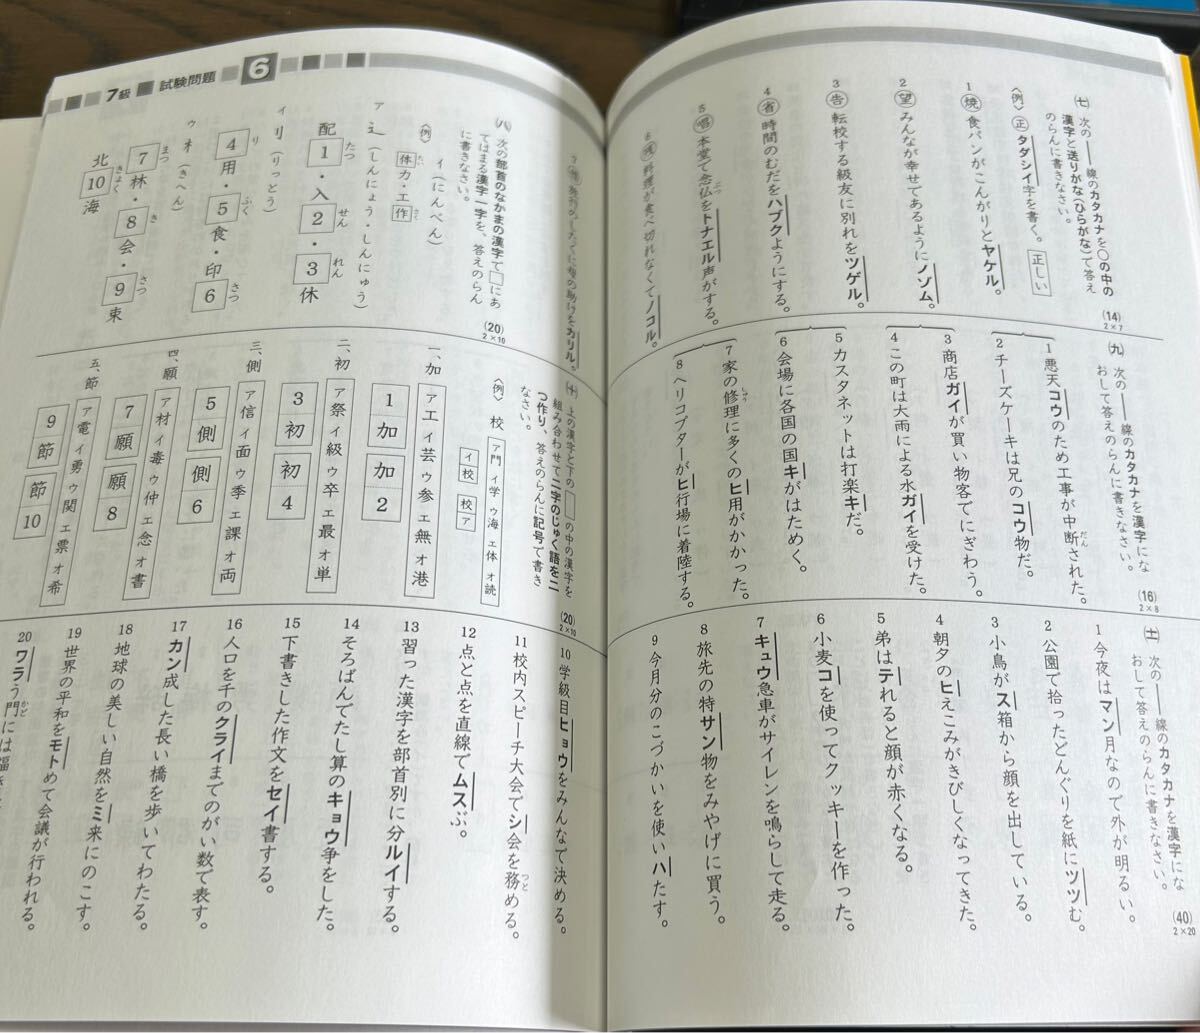 ㈦ 次の――線のカタカナを〇の中の
漢字と送りがな(ひらがな)で答え
のらんに書きなさい。
(14)
2×7
〈例〉 正 タダシイ字を書く。 正しい
1 焼 食パンがこんがりとヤケル。
2 望 みんなが幸せであるようにノゾム。
3 告 転校する級友に別れをツゲル。
4 省 時間のむだをハブクようにする。
5 唱 本堂で念仏をトナエル声がする。
ぶつ
6 残 料理が食べ切れなくてノコル。
7 の助けをカリル。
7級 試験問題 6
㈧ 次の部首のなかまの漢字で□にあ
てはまる漢字一字を、答えのらん
に書きなさい。
(20)
2×10
〈例〉 イ(にんべん)
体力・工作
たい さく
ア 辶(しんにょう・しんにゅう)
配1・入2・3休
たつ せん れん
イ 刂(りっとう)
4用・5食・印6
り ふく さつ
ウ 木(きへん)
7林・8会・9束
まつ き さつ
北10海
きょく
㈨ 次の――線のカタカナを漢字にな
おして答えのらんに書きなさい。
(16)
2×8
1 悪天コウのため工事が中断された。
だん
2 チーズケーキは兄のコウ物だ。
3 商店ガイが買い物客でにぎわう。
4 この町は大雨による水ガイを受けた。
5 カスタネットは打楽キだ。
6 会場に各国の国キがはためく。
7 家の修理に多くのヒ用がかかった。
しゅう
8 ヘリコプターがヒ行場に着陸する。
㈩ 上の漢字と下の□の中の漢字を
組み合わせて二字のじゅく語を二
つ作り、答えのらんに記号で書き
なさい。
(20)
2×10
〈例〉 校 ア門 イ学 ウ海 エ体 オ読
イ校 校ア
一、加 ア工 イ芸 ウ参 エ無 オ港
1加 加2
二、初 ア祭 イ級 ウ卒 エ最 オ単
3初 初4
三、側 ア信 イ面 ウ季 エ課 オ両
5側 側6
四、願 ア材 イ毒 ウ仲 エ念 オ書
7願 願8
五、節 ア電 イ勇 ウ関 エ票 オ希
9節 節10
(十一) 次の――線のカタカナを漢字にな
おして答えのらんに書きなさい。
(40)
2×20
1 今夜はマン月なので外が明るい。
2 公園で拾ったどんぐりを紙にツツむ。
3 小鳥がス箱から顔を出している。
4 朝夕のヒえこみがきびしくなってきた。
5 弟はテれると顔が赤くなる。
6 小麦コを使ってクッキーを作った。
7 キュウ急車がサイレンを鳴らして走る。
8 旅先の特サン物をみやげに買う。
9 今月分のこづかいを使いハたす。
10 学級目ヒョウをみんなで決める。
11 校内スピーチ大会でシ会を務める。
つと
12 点と点を直線でムスぶ。
13 習った漢字を部首別に分ルイする。
14 そろばんでたし算のキョウ争をした。
15 下書きした作文をセイ書する。
16 人口を千のクライまでのがい数で表す。
17 カン成した長い橋を歩いてわたる。
18 地球の美しい自然をミ来にのこす。
19 世界の平和をモトめて会議が行われる。
20 ワラう門には福
かど